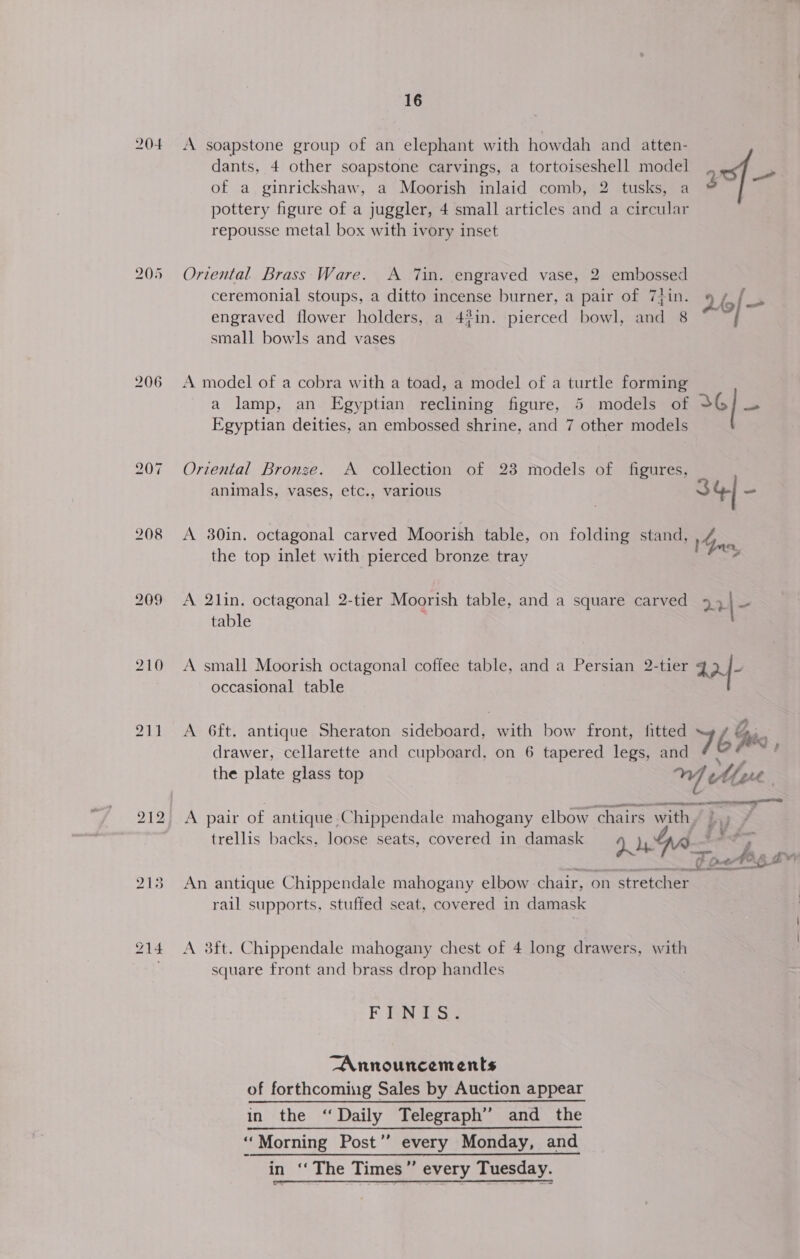 16
204 A soapstone group of an elephant with howdah and atten-
dants, 4 other soapstone carvings, a tortoiseshell model
of a ginrickshaw, a Moorish inlaid comb, 2 tusks, a
pottery figure of a juggler, 4 small articles and a circular
repousse metal box with ivory inset
205 Oriental Brass Ware. A 7in. engraved vase, 2 embossed
ceremonial stoups, a ditto incense burner, a pair of 7¼in. 26/-
engraved flower holders, a 4¾in. pierced bowl, and 8
small bowls and vases
206 A model of a cobra with a toad, a model of a turtle forming
a lamp, an Egyptian reclining figure, 5 models of 36/-
Egyptian deities, an embossed shrine, and 7 other models
207 Oriental Bronze. A collection of 23 models of figures,
animals, vases, etc., various 34/-
208 A 30in. octagonal carved Moorish table, on folding stand,
the top inlet with pierced bronze tray
209 A 21in. octagonal 2-tier Moorish table, and a square carved 22/-
table
210 A small Moorish octagonal coffee table, and a Persian 2-tier 42/-
occasional table
211 A 6ft. antique Sheraton sideboard, with bow front, fitted
drawer, cellarette and cupboard, on 6 tapered legs, and
the plate glass top
212 A pair of antique Chippendale mahogany elbow chairs with
trellis backs, loose seats, covered in damask
213 An antique Chippendale mahogany elbow chair, on stretcher
rail supports, stuffed seat, covered in damask
214 A 3ft. Chippendale mahogany chest of 4 long drawers, with
square front and brass drop handles
FINIS.
Announcements
of forthcoming Sales by Auction appear
in the “Daily Telegraph” and the
“Morning Post” every Monday, and
in “The Times” every Tuesday.